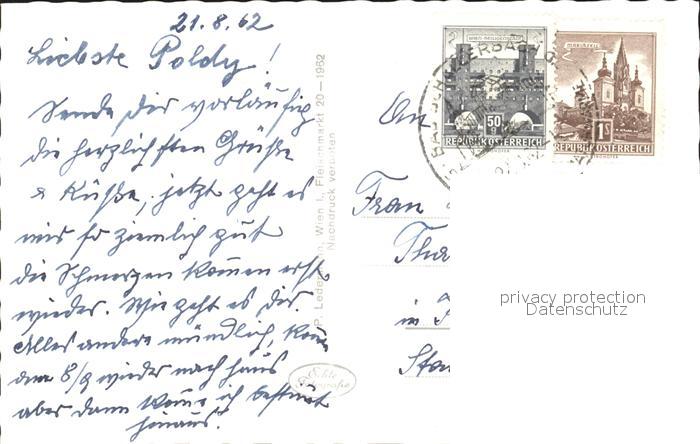 21.8.62
Liebste Poldy!
Sende Dir vorläufig
die herzlichsten Grüße
& Küße, jetzt geht es
mir so ziemlich gut
die Schmerzen kommen erst
wieder. Wie geht es Dir.
Alles andere mündlich, komme
dem 8/9 wieder nach haus
aber dann komme ich bestimmt
hinaus.
P. Leder n, Wien I., Fleischmarkt 20 — 1962
Nachdruck verboten
Echte
Fotografie
An
Frau
Tha
in
Sta
WIEN-HEILIGENSTADT
50 g
REPUBLIK ÖSTERREICH
MARIAZELL
1 S
REPUBLIK ÖSTERREICH
privacy protection
Datenschutz